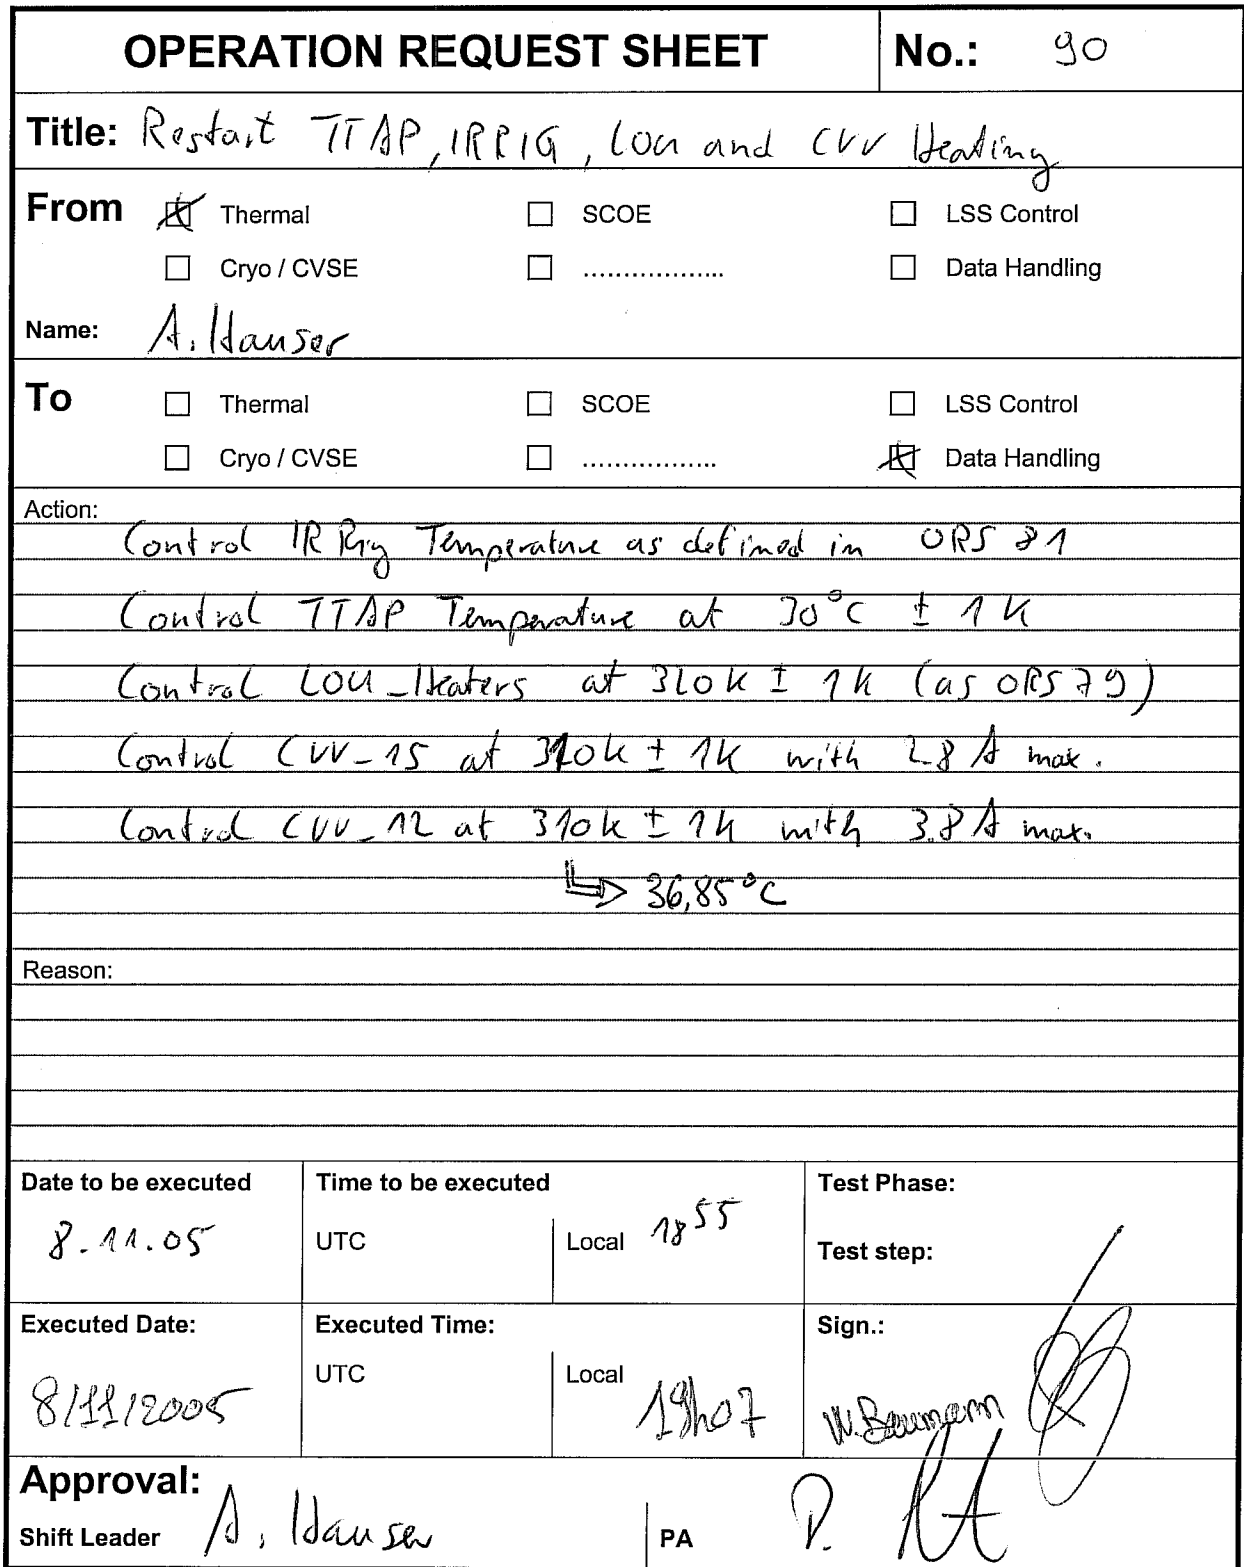 OPERATION REQUEST SHEET No.: 90
Title: Restart TTAP, IRRIG, LOU and CVV Heating
From Thermal SCOE LSS Control
Cryo / CVSE .................. Data Handling
Name: A. Hauser
To Thermal SCOE LSS Control
Cryo / CVSE ................. Data Handling
Action:
Control IR Rig Temperature as defined in ORS 81
Control TTAP Temperature at 30°C ± 1 K
Control LOU_Heaters at 310K ± 1K (as ORS 79)
Control CVV_15 at 310K ± 1K with 2.8 A max.
Control CVV_12 at 310K ± 1K with 3.8 A max.
36,85°C
Reason:
Date to be executed Time to be executed Test Phase:
8.11.05 UTC Local 18 55 Test step:
Executed Date: Executed Time: Sign.:
8/11/2005 UTC Local 19h07 W. Baumann
Approval:
Shift Leader A. Hauser PA